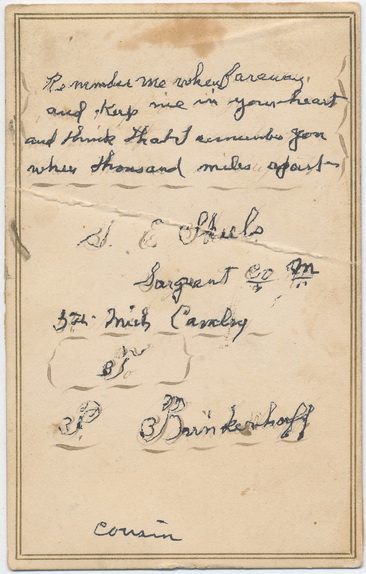 Remember me when faraway
and Keep me in your heart
and think that I remember you
when thousand miles apart
S. E. Steels
Sargeant Co M
5th Mich Cavalry
To
P M Brinkerhoff
cousin